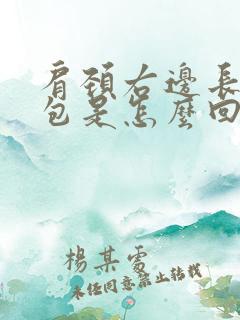 肩頸右邊長
包是怎麼回
楊某雾
未经同意禁止转载